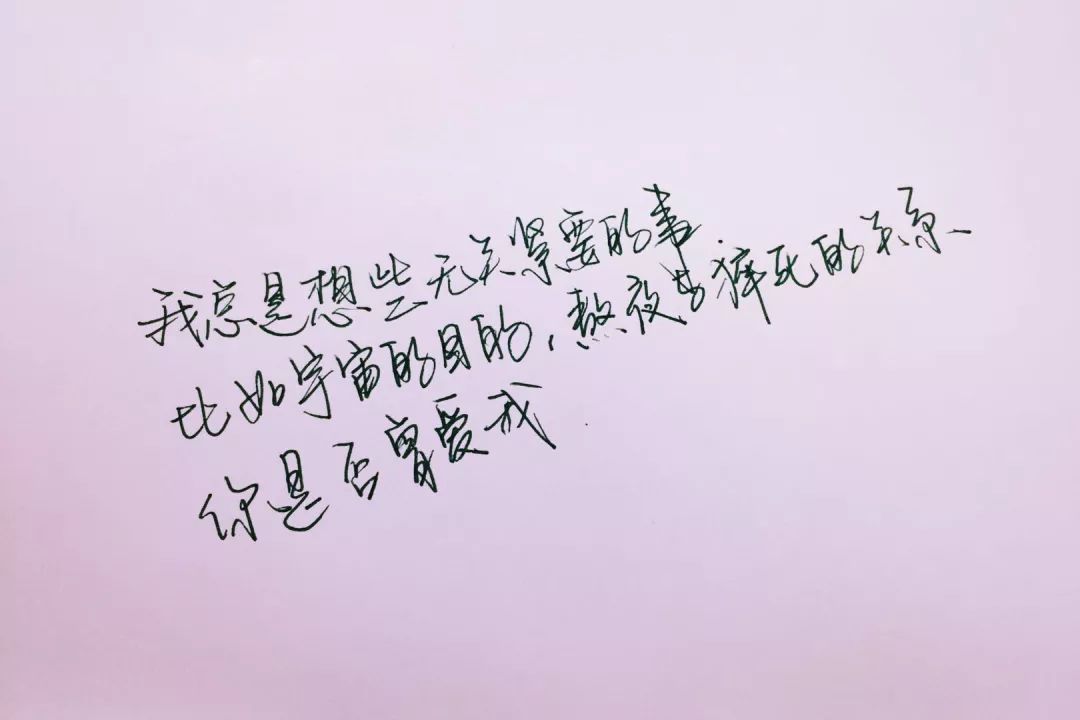 我总是想些无关紧要的事
比如宇宙的目的,熬夜与猝死的关系、
你是否曾爱我